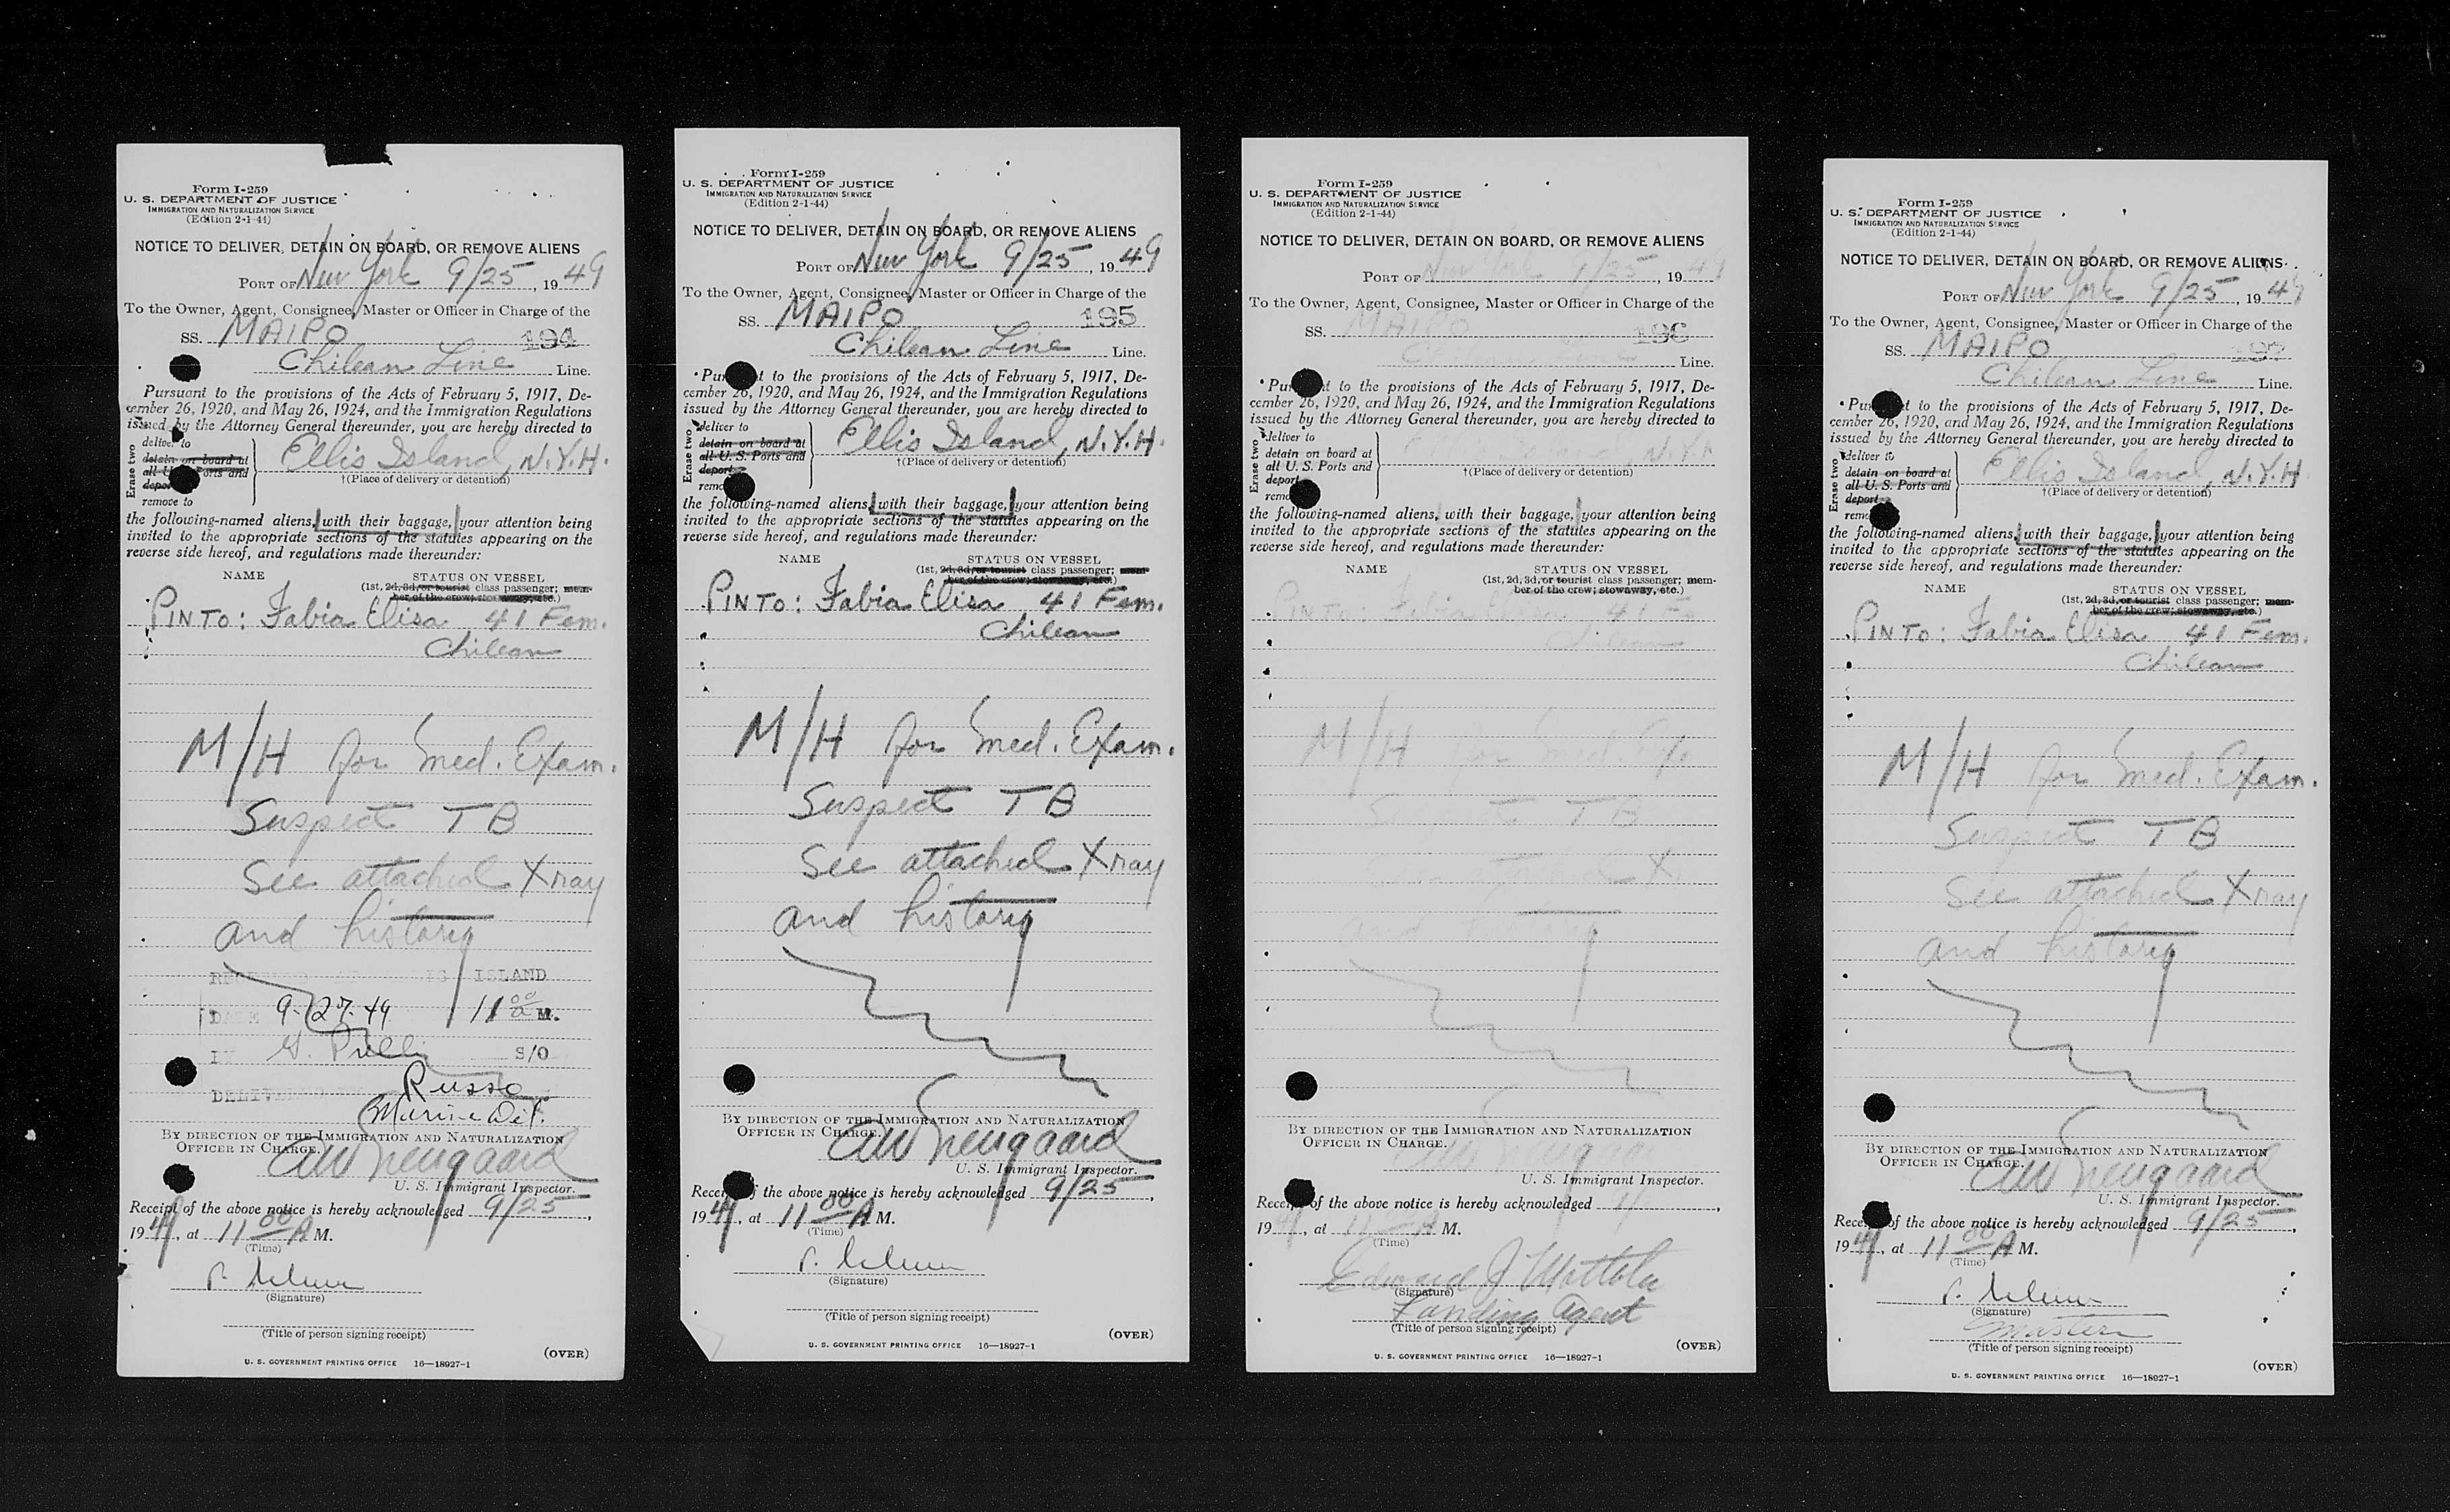 Form I-259
U. S. DEPARTMENT OF JUSTICE
IMMIGRATION AND NATURALIZATION SERVICE
(Edition 2-1-44)
NOTICE TO DELIVER, DETAIN ON BOARD, OR REMOVE ALIENS
PORT OF New York 9/25, 1949
To the Owner, Agent, Consignee, Master or Officer in Charge of the
SS. MAIPO 194
Chilean Line Line.
Pursuant to the provisions of the Acts of February 5, 1917, De-
cember 26, 1920, and May 26, 1924, and the Immigration Regulations
issued by the Attorney General thereunder, you are hereby directed to
Erase two
deliver to
detain on board at
all U. S. Ports and
deport
remove to
Ellis Island, N.Y.H.
†(Place of delivery or detention)
the following-named aliens, with their baggage, your attention being
invited to the appropriate sections of the statutes appearing on the
reverse side hereof, and regulations made thereunder:
NAME STATUS ON VESSEL
(1st, 2d, 3d, or tourist class passenger; mem-
ber of the crew; stowaway, etc.)
PINTO: Fabia Elisa 41 Fem.
Chilean
M/H for Med. Exam.
Suspect TB
See attached Xray
and history
ISLAND
DATE 9-27-49 11 00 a M.
S/O
Russo
BY DIRECTION OF THE IMMIGRATION AND NATURALIZATION
OFFICER IN CHARGE.
U. S. Immigrant Inspector.
Receipt of the above notice is hereby acknowledged 9/25,
1949, at 11 00 A M.
(Time)
(Signature)
(Title of person signing receipt)
(OVER)
U. S. GOVERNMENT PRINTING OFFICE 16—18927-1
Form I-259
U. S. DEPARTMENT OF JUSTICE
IMMIGRATION AND NATURALIZATION SERVICE
(Edition 2-1-44)
NOTICE TO DELIVER, DETAIN ON BOARD, OR REMOVE ALIENS
PORT OF New York 9/25, 1949
To the Owner, Agent, Consignee, Master or Officer in Charge of the
SS. MAIPO 195
Chilean Line Line.
Pursuant to the provisions of the Acts of February 5, 1917, De-
cember 26, 1920, and May 26, 1924, and the Immigration Regulations
issued by the Attorney General thereunder, you are hereby directed to
Erase two
deliver to
detain on board at
all U. S. Ports and
deport
Ellis Island, N.Y.H.
†(Place of delivery or detention)
the following-named aliens, with their baggage, your attention being
invited to the appropriate sections of the statutes appearing on the
reverse side hereof, and regulations made thereunder:
NAME STATUS ON VESSEL
(1st, 2d, 3d, or tourist class passenger; mem-
ber of the crew; stowaway, etc.)
PINTO: Fabia Elisa 41 Fem.
Chilean
M/H for Med. Exam.
Suspect TB
See attached Xray
and history
BY DIRECTION OF THE IMMIGRATION AND NATURALIZATION
OFFICER IN CHARGE.
U. S. Immigrant Inspector.
Receipt of the above notice is hereby acknowledged 9/25,
1949, at 11 00 A M.
(Time)
(Signature)
(Title of person signing receipt)
(OVER)
U. S. GOVERNMENT PRINTING OFFICE 16—18927-1
Form I-259
U. S. DEPARTMENT OF JUSTICE
IMMIGRATION AND NATURALIZATION SERVICE
(Edition 2-1-44)
NOTICE TO DELIVER, DETAIN ON BOARD, OR REMOVE ALIENS
PORT OF New York 9/25, 1949
To the Owner, Agent, Consignee, Master or Officer in Charge of the
SS. MAIPO 196
Line.
Pursuant to the provisions of the Acts of February 5, 1917, De-
cember 26, 1920, and May 26, 1924, and the Immigration Regulations
issued by the Attorney General thereunder, you are hereby directed to
Erase two
deliver to
detain on board at
all U. S. Ports and
deport
N.Y.H
†(Place of delivery or detention)
the following-named aliens, with their baggage, your attention being
invited to the appropriate sections of the statutes appearing on the
reverse side hereof, and regulations made thereunder:
NAME STATUS ON VESSEL
(1st, 2d, 3d, or tourist class passenger; mem-
ber of the crew; stowaway, etc.)
PINTO: Fabia 41
Chilean
M/H for Med.
Suspect TB
and history
BY DIRECTION OF THE IMMIGRATION AND NATURALIZATION
OFFICER IN CHARGE.
U. S. Immigrant Inspector.
Receipt of the above notice is hereby acknowledged
19 , at 11 A M.
(Time)
Edward J Mottola
(Signature)
Landing Agent
(Title of person signing receipt)
(OVER)
U. S. GOVERNMENT PRINTING OFFICE 16—18927-1
Form I-259
U. S. DEPARTMENT OF JUSTICE
IMMIGRATION AND NATURALIZATION SERVICE
(Edition 2-1-44)
NOTICE TO DELIVER, DETAIN ON BOARD, OR REMOVE ALIENS
PORT OF New York 9/25, 1949
To the Owner, Agent, Consignee, Master or Officer in Charge of the
SS. MAIPO 197
Chilean Line Line.
Pursuant to the provisions of the Acts of February 5, 1917, De-
cember 26, 1920, and May 26, 1924, and the Immigration Regulations
issued by the Attorney General thereunder, you are hereby directed to
Erase two
deliver to
detain on board at
all U. S. Ports and
deport
Ellis Island, N.Y.H
†(Place of delivery or detention)
the following-named aliens, with their baggage, your attention being
invited to the appropriate sections of the statutes appearing on the
reverse side hereof, and regulations made thereunder:
NAME STATUS ON VESSEL
(1st, 2d, 3d, or tourist class passenger; mem-
ber of the crew; stowaway, etc.)
PINTO: Fabia Elisa 41 Fem.
Chilean
M/H for Med. Exam.
Suspect TB
See attached Xray
and history
BY DIRECTION OF THE IMMIGRATION AND NATURALIZATION
OFFICER IN CHARGE.
U. S. Immigrant Inspector.
Receipt of the above notice is hereby acknowledged 9/25,
1949, at 11 00 A M.
(Time)
(Signature)
Master
(Title of person signing receipt)
(OVER)
U. S. GOVERNMENT PRINTING OFFICE 16—18927-1